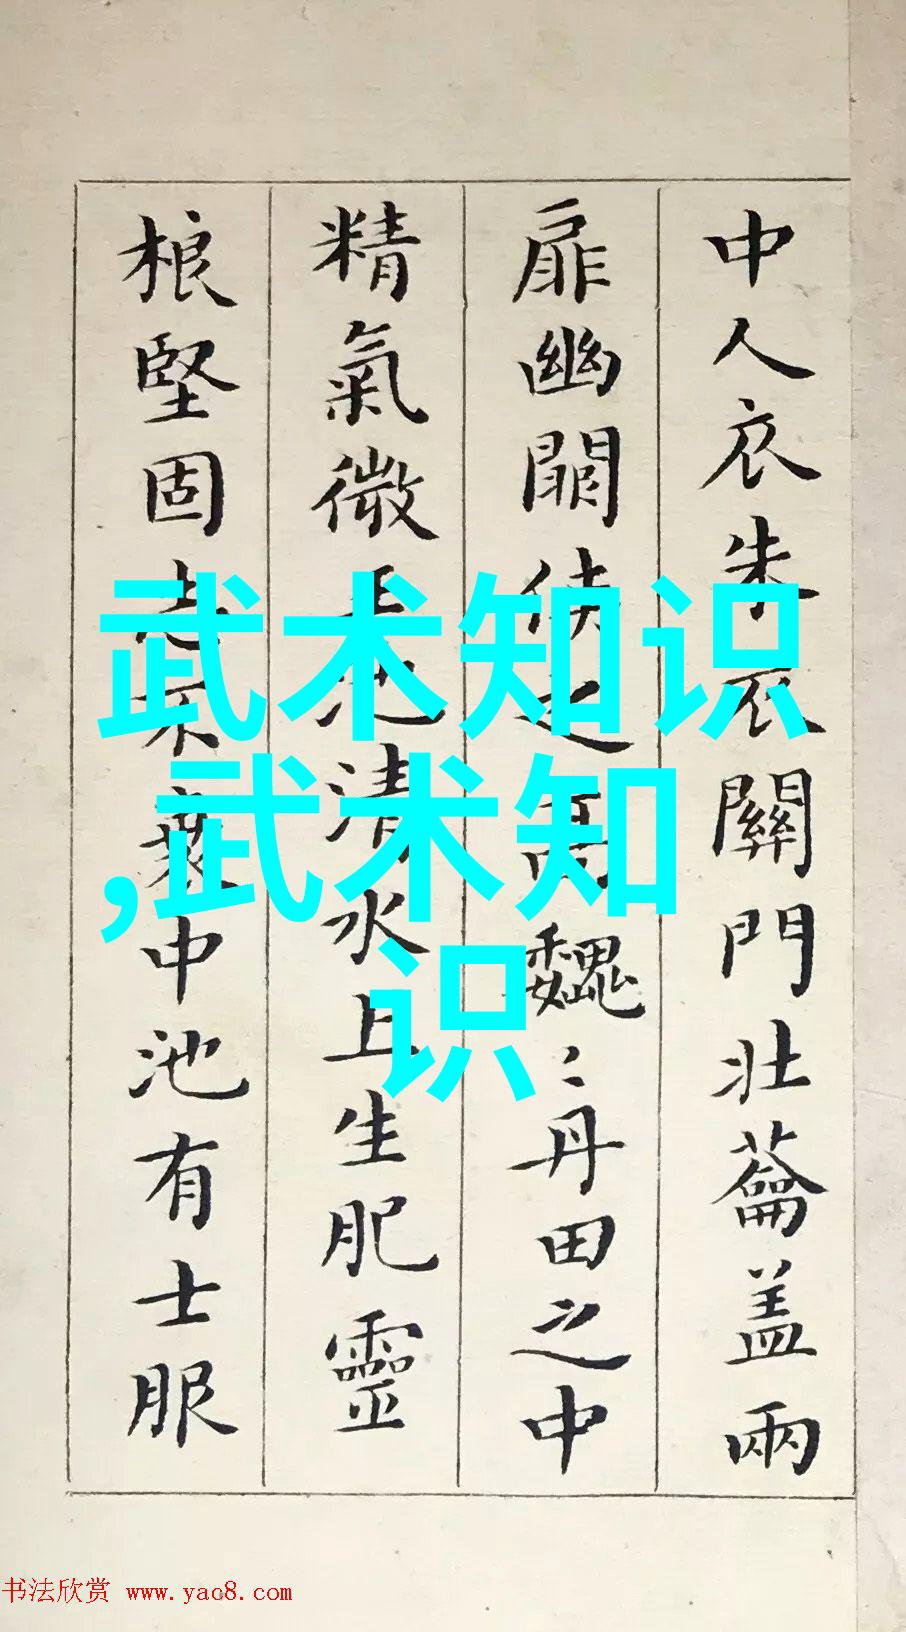 中人衣朱衣關門壯蘥盖兩
扉幽闕俠之高巍〻丹田之中
精氣微玉池清水上生肥靈
根堅固志不衰中池有士服
武术知识
,武术知
识
书法欣赏 www.yac8.com